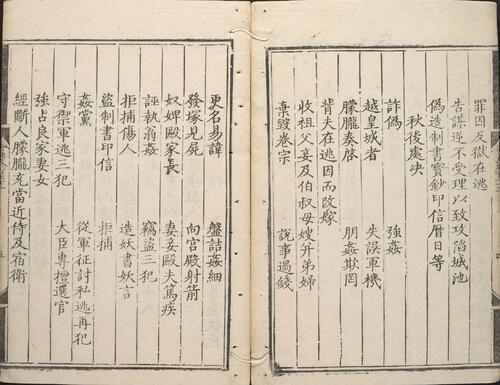 罪囚反獄在逃
告謀逆不受理以致攻陷城池
偽造制書寳鈔印信曆日等
秋後處決
詐偽 強姦
越皇城者 失誤軍機
朦朧奏啓 朋姦欺罔
背夫在逃因而改嫁
收祖父妾及伯叔母嫂并弟婦
棄毀卷宗 說事過錢
更名易諱 盤詰姦細
發塚見屍 向宮殿射箭
奴婢毆家長 妻妾毆夫篤疾
誣執翁姦 竊盜三犯
拒捕傷人 造妖書妖言
盜制書印信 拒捕
姦黨 從軍征討私逃再犯
守禦軍逃三犯 大臣專擅選官
強占良家妻女
經斷人朦朧充當近侍及宿衛